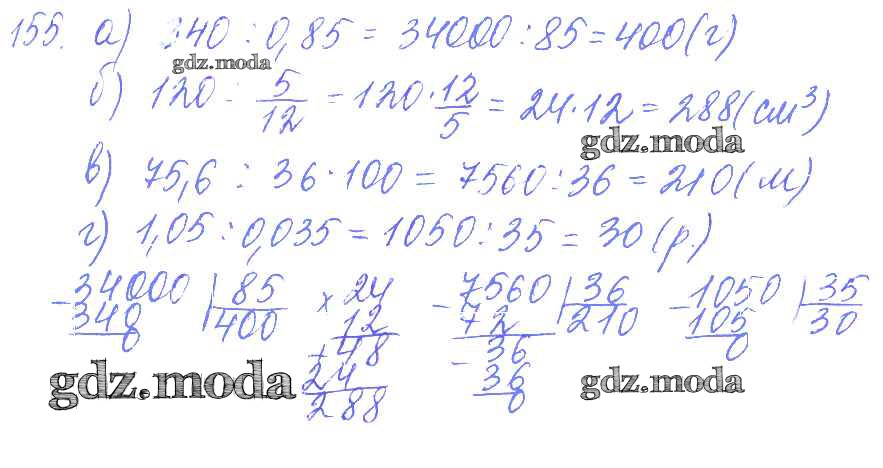 155. а) 340 : 0,85 = 34000 : 85 = 400 (г)
gdz.moda
б) 120 : 5/12 = 120 · 12/5 = 24 · 12 = 288 (см³)
gdz.moda
в) 75,6 : 36 · 100 = 7560 : 36 = 210 (м)
г) 1,05 : 0,035 = 1050 : 35 = 30 (р.)
- 34000 | 85 × 24 - 7560 | 36 - 1050 | 35
340 400 12 72 210 105 30
0 + 48 - 36 0
24 36
288 0
gdz.moda gdz.moda